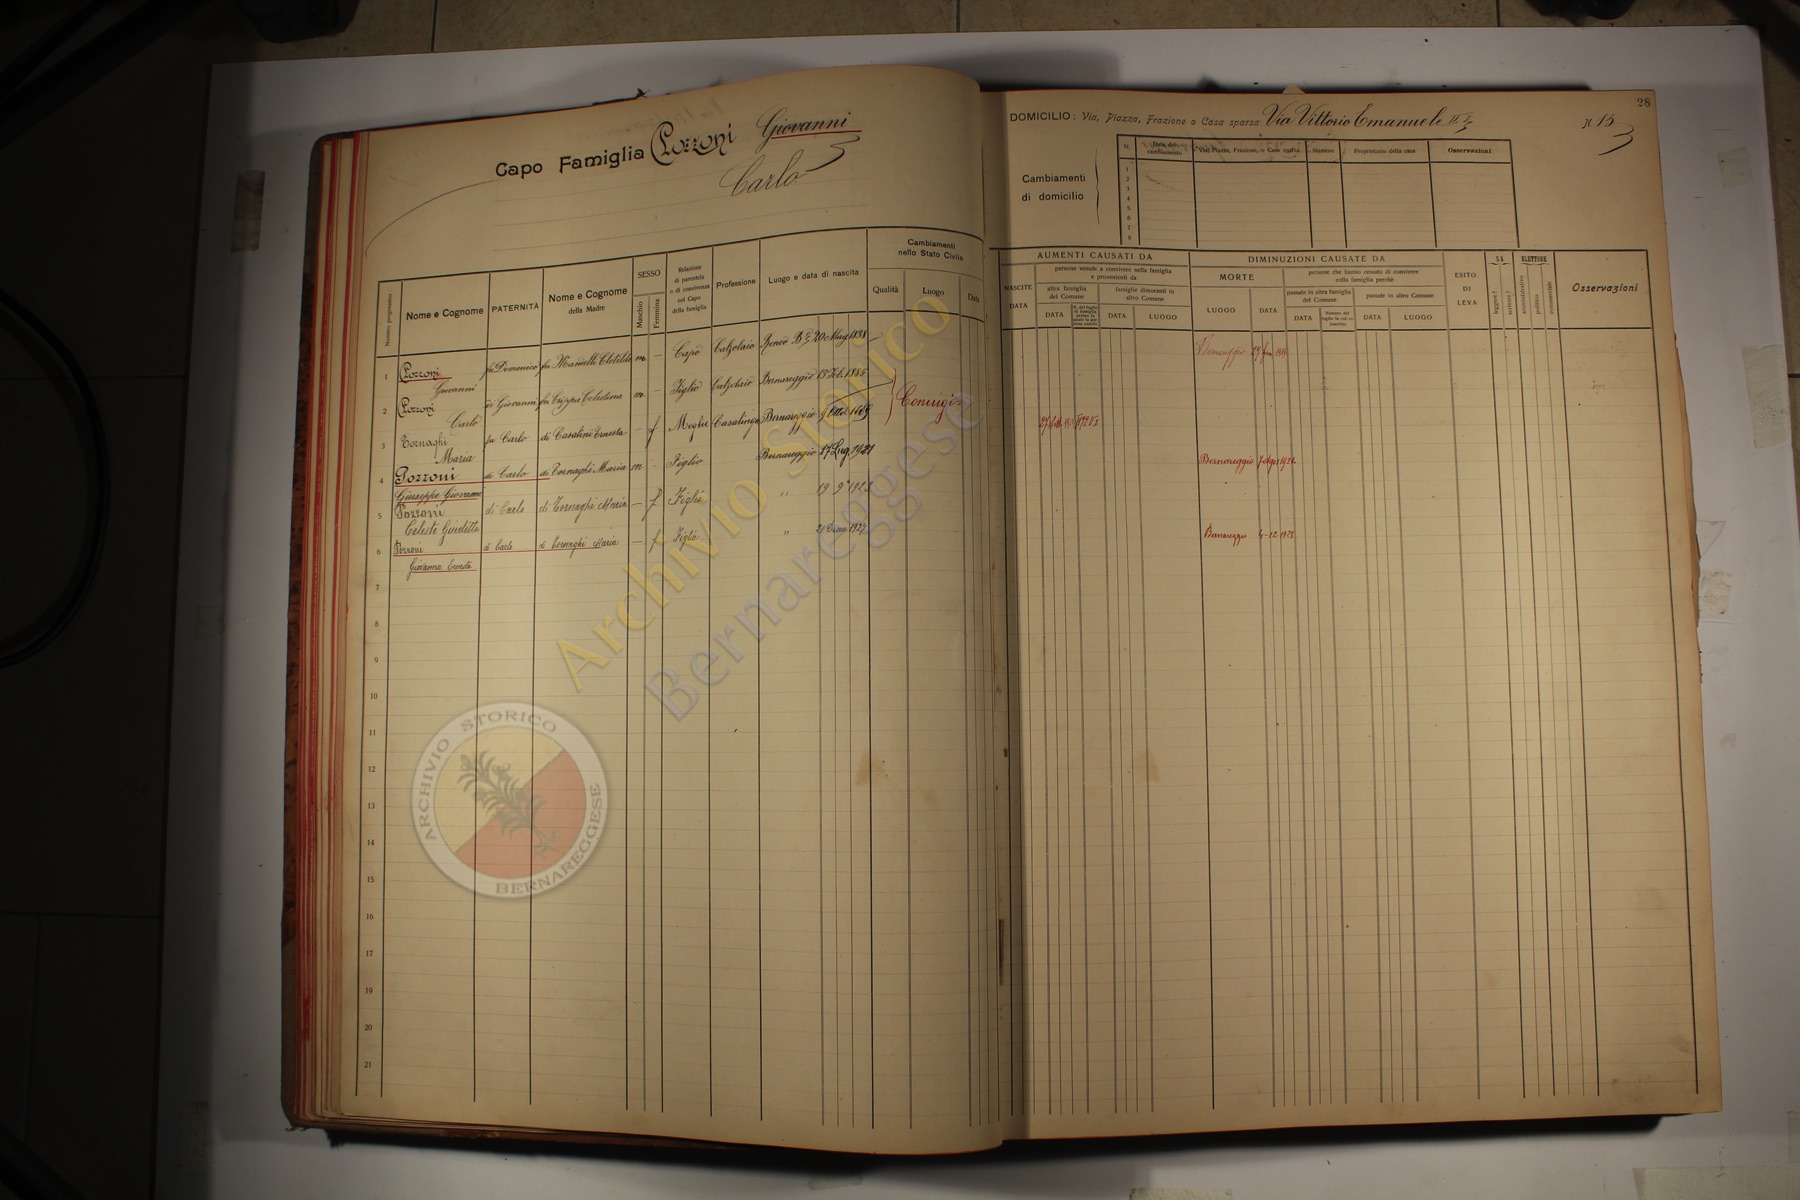 28
Capo Famiglia Pozzoni Giovanni
Carlo
DOMICILIO: Via, Piazza, Frazione o Casa sparsa Via Vittorio Emanuele II N 15
Cambiamenti di domicilio
N. Data del cambiamento Via, Piazza, Frazione, o Casa sparsa Numero Proprietario della casa Osservazioni
1
2
3
4
5
6
7
8
Numero progressivo
Nome e Cognome
PATERNITÀ
Nome e Cognome della Madre
SESSO
Maschio
Femmina
Relazione di parentela o di convivenza col Capo della famiglia
Professione
Luogo e data di nascita
Cambiamenti nello Stato Civile
Qualità
Luogo
Data
AUMENTI CAUSATI DA
NASCITE
DATA
persone venute a convivere nella famiglia e provenienti da
altra famiglia del Comune
DATA
famiglie dimoranti in altro Comune
DATA
LUOGO
DIMINUZIONI CAUSATE DA
MORTE
LUOGO
DATA
persone che hanno cessato di convivere nella famiglia perchè
passate in altra famiglia del Comune
DATA
passate in altro Comune
DATA
LUOGO
ESITO DI LEVA
SA
leggere?
scrivere?
ELETTORE
amministrativo
politico
commerciale
Osservazioni
1 Pozzoni Giovanni fu Domenico fu Mandelli Clotilde m - Capo Calzolaio Ronco 20 Mag 1838 Bernareggio
2 Pozzoni Carlo di Giovanni fu Crippa Celestina m - Figlio Calzolaio Bernareggio 13 Feb. 1885 Coniugi
3 Tornaghi Maria fu Carlo di Casatini Ernesta - f Moglie Casalinga Bernareggio
4 Pozzoni Giuseppe Giovanni di Carlo di Tornaghi Maria m - Figlio Bernareggio 17 Lug. 1921 Bernareggio
5 Pozzoni Celeste Giuditta di Carlo di Tornaghi Maria - f Figlia " 19
6 Pozzoni Giovanna Ernesta di Carlo di Tornaghi Maria - f Figlia " Bernareggio
7
8
9
10
11
12
13
14
15
16
17
18
19
20
21
Archivio Storico
Bernareggese
ARCHIVIO STORICO BERNAREGGESE